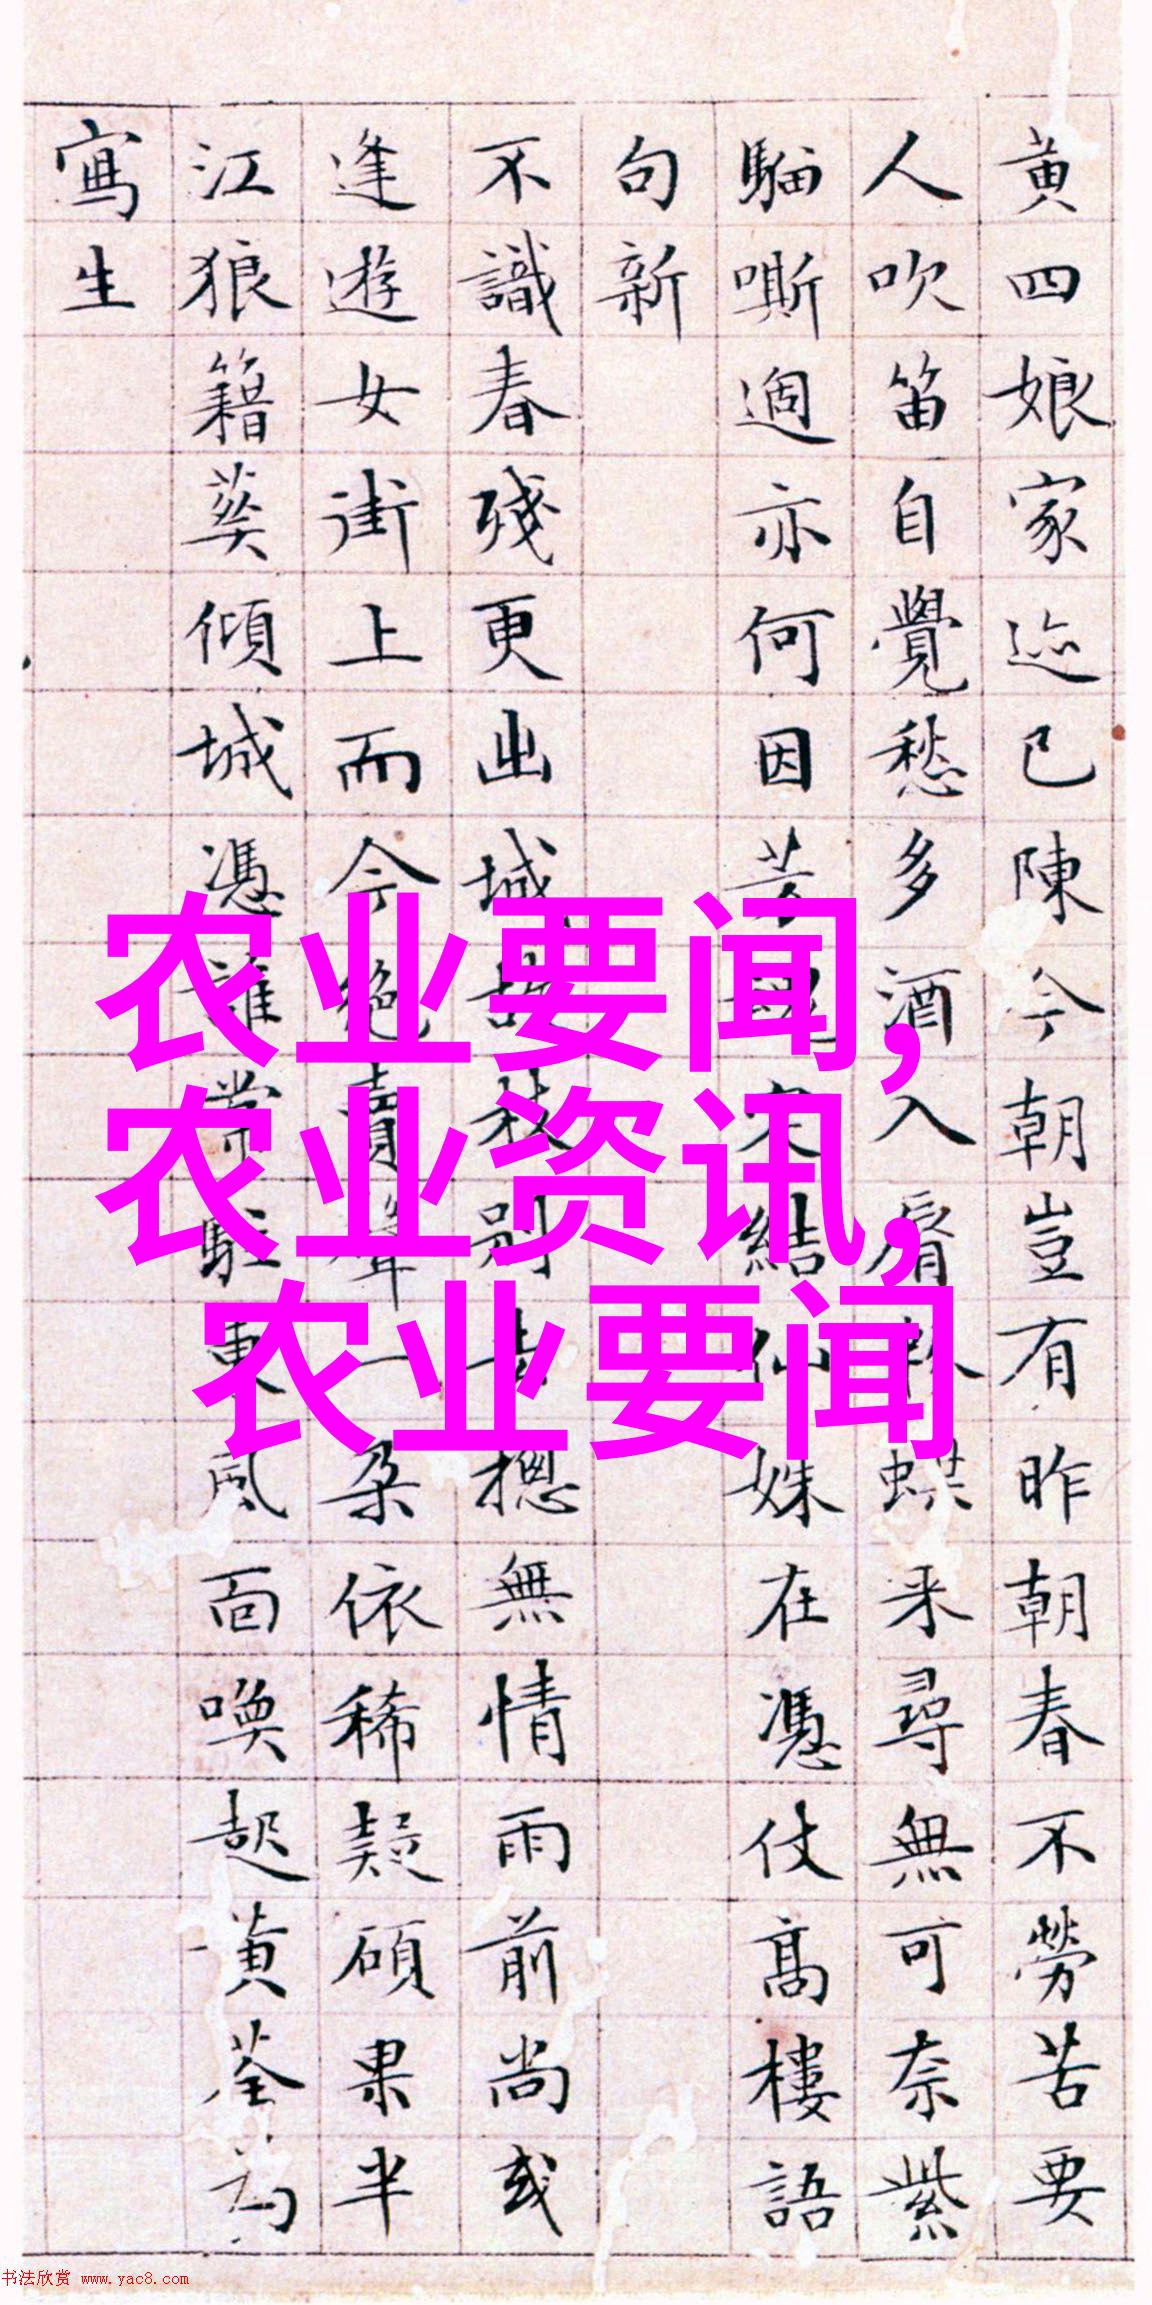 黄四娘家迹已陳今朝豈有昨朝春不勞苦要
人吹笛自覺愁多酒入脣蝶来尋無可奈紫
騮嘶過亦何因芳魂定結仙姝在憑仗高樓語
句新
不識春殘更出城故枝别去摠無情雨前尚或
逢遊女街上而今絶賣聲一朵依稀疑碩果半
江狼籍葵傾城憑誰常駐東風面喚起黄荃為
寫生
农业要闻,
农业资讯,
农业要闻
书法欣赏 www.yac8.com